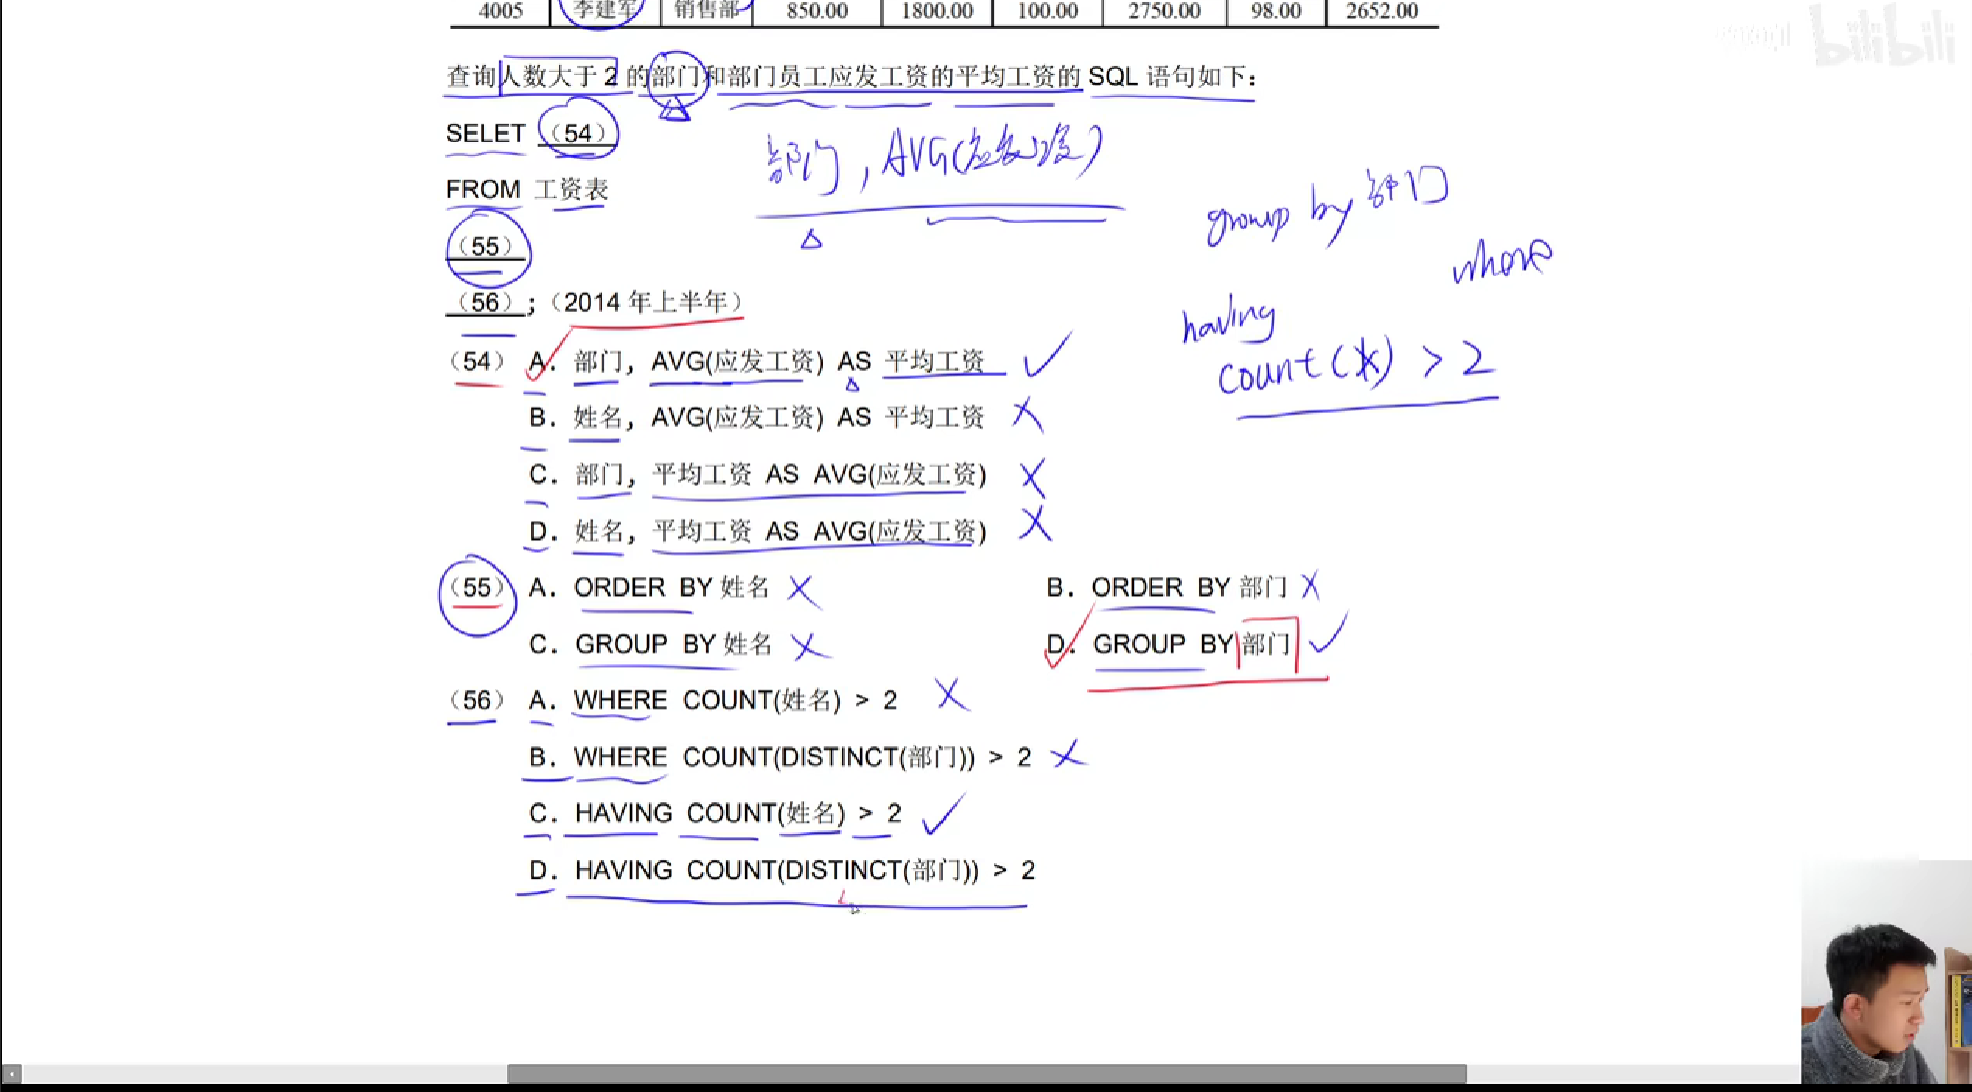 4005 李建军 销售部 850.00 1800.00 100.00 2750.00 98.00 2652.00
bilibili
查询人数大于 2 的部门和部门员工应发工资的平均工资的 SQL 语句如下：
SELET （54）
部门, AVG(应发工资)
FROM 工资表
group by 部门
（55）
where
（56）；（2014 年上半年）
having
count(*) > 2
（54） A．部门，AVG(应发工资) AS 平均工资
B．姓名，AVG(应发工资) AS 平均工资
C．部门，平均工资 AS AVG(应发工资)
D．姓名，平均工资 AS AVG(应发工资)
（55） A．ORDER BY 姓名 B．ORDER BY 部门
C．GROUP BY 姓名 D．GROUP BY 部门
（56） A．WHERE COUNT(姓名) > 2
B．WHERE COUNT(DISTINCT(部门)) > 2
C．HAVING COUNT(姓名) > 2
D．HAVING COUNT(DISTINCT(部门)) > 2